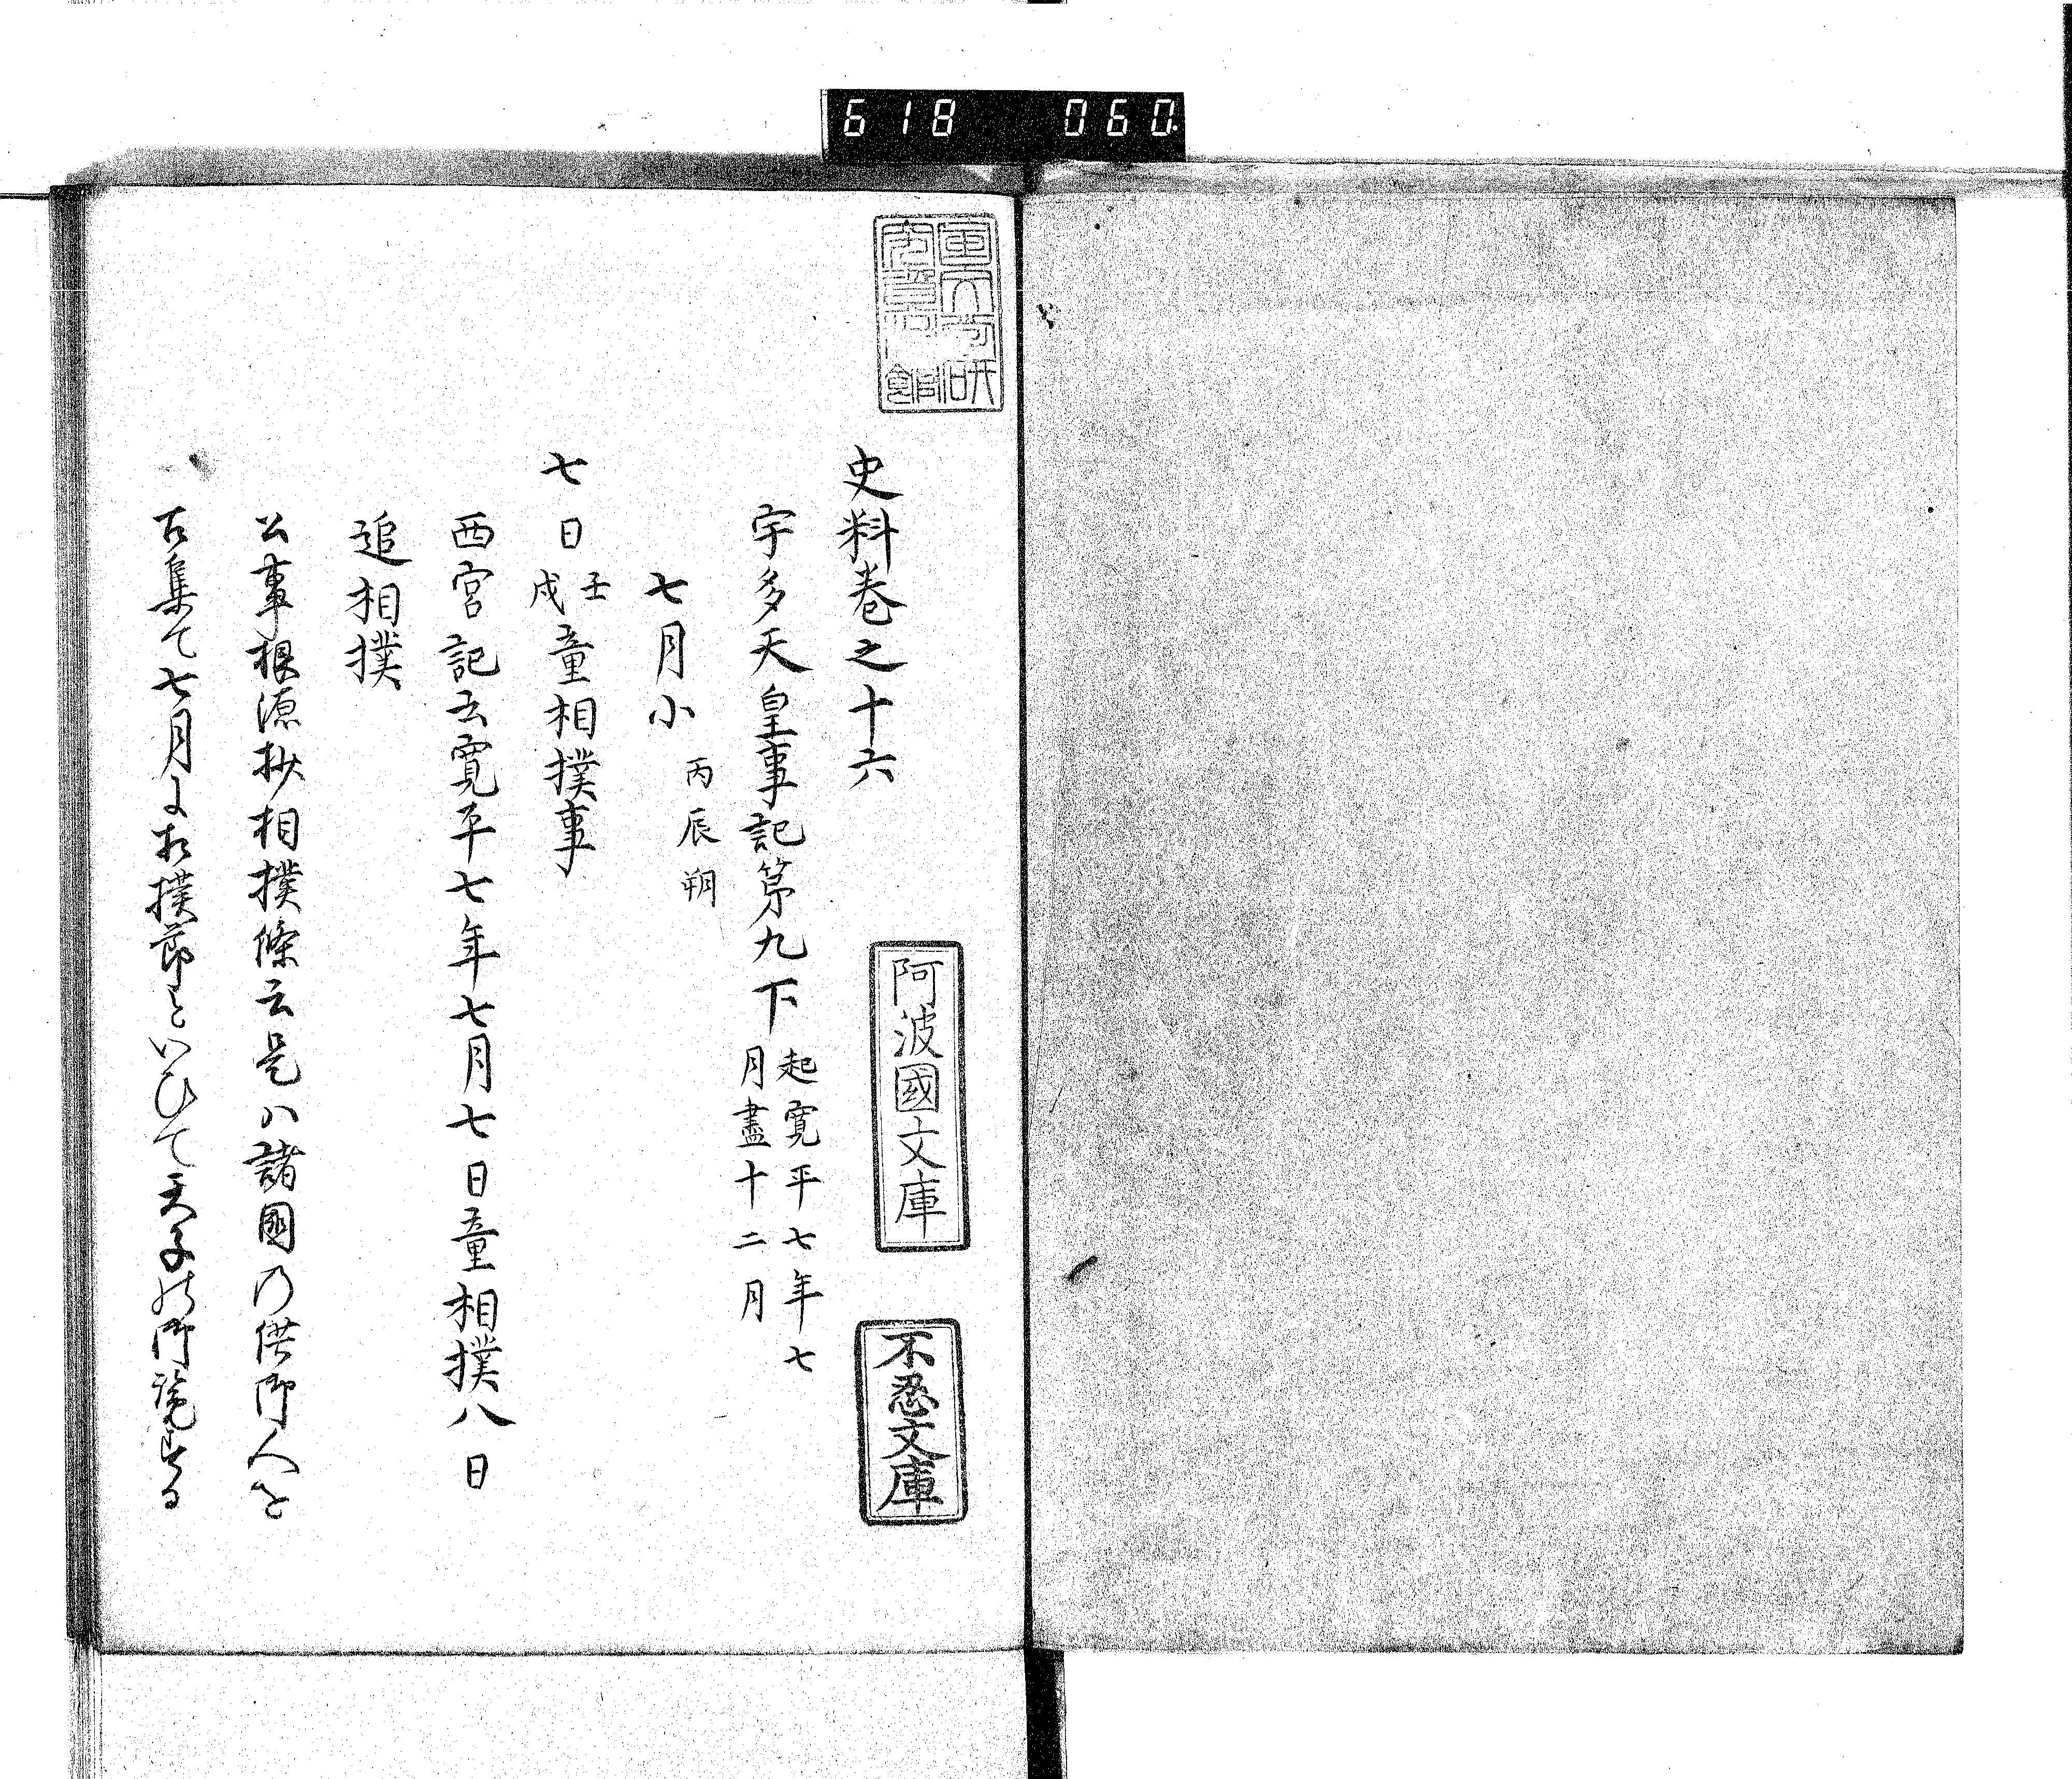 618 060
国文学研
究資料館
史料巻之十六
阿波國文庫
不忍文庫
宇多天皇事記第九下 起寛平七年七
月盡十二月
七月小 丙辰朔
七日 壬戌 童相撲事
西宮記云寛平七年七月七日童相撲八日
追相撲
公事根源抄相撲條云是ハ諸國の供御人を
召集て七月に相撲節といひて天子の御覧する